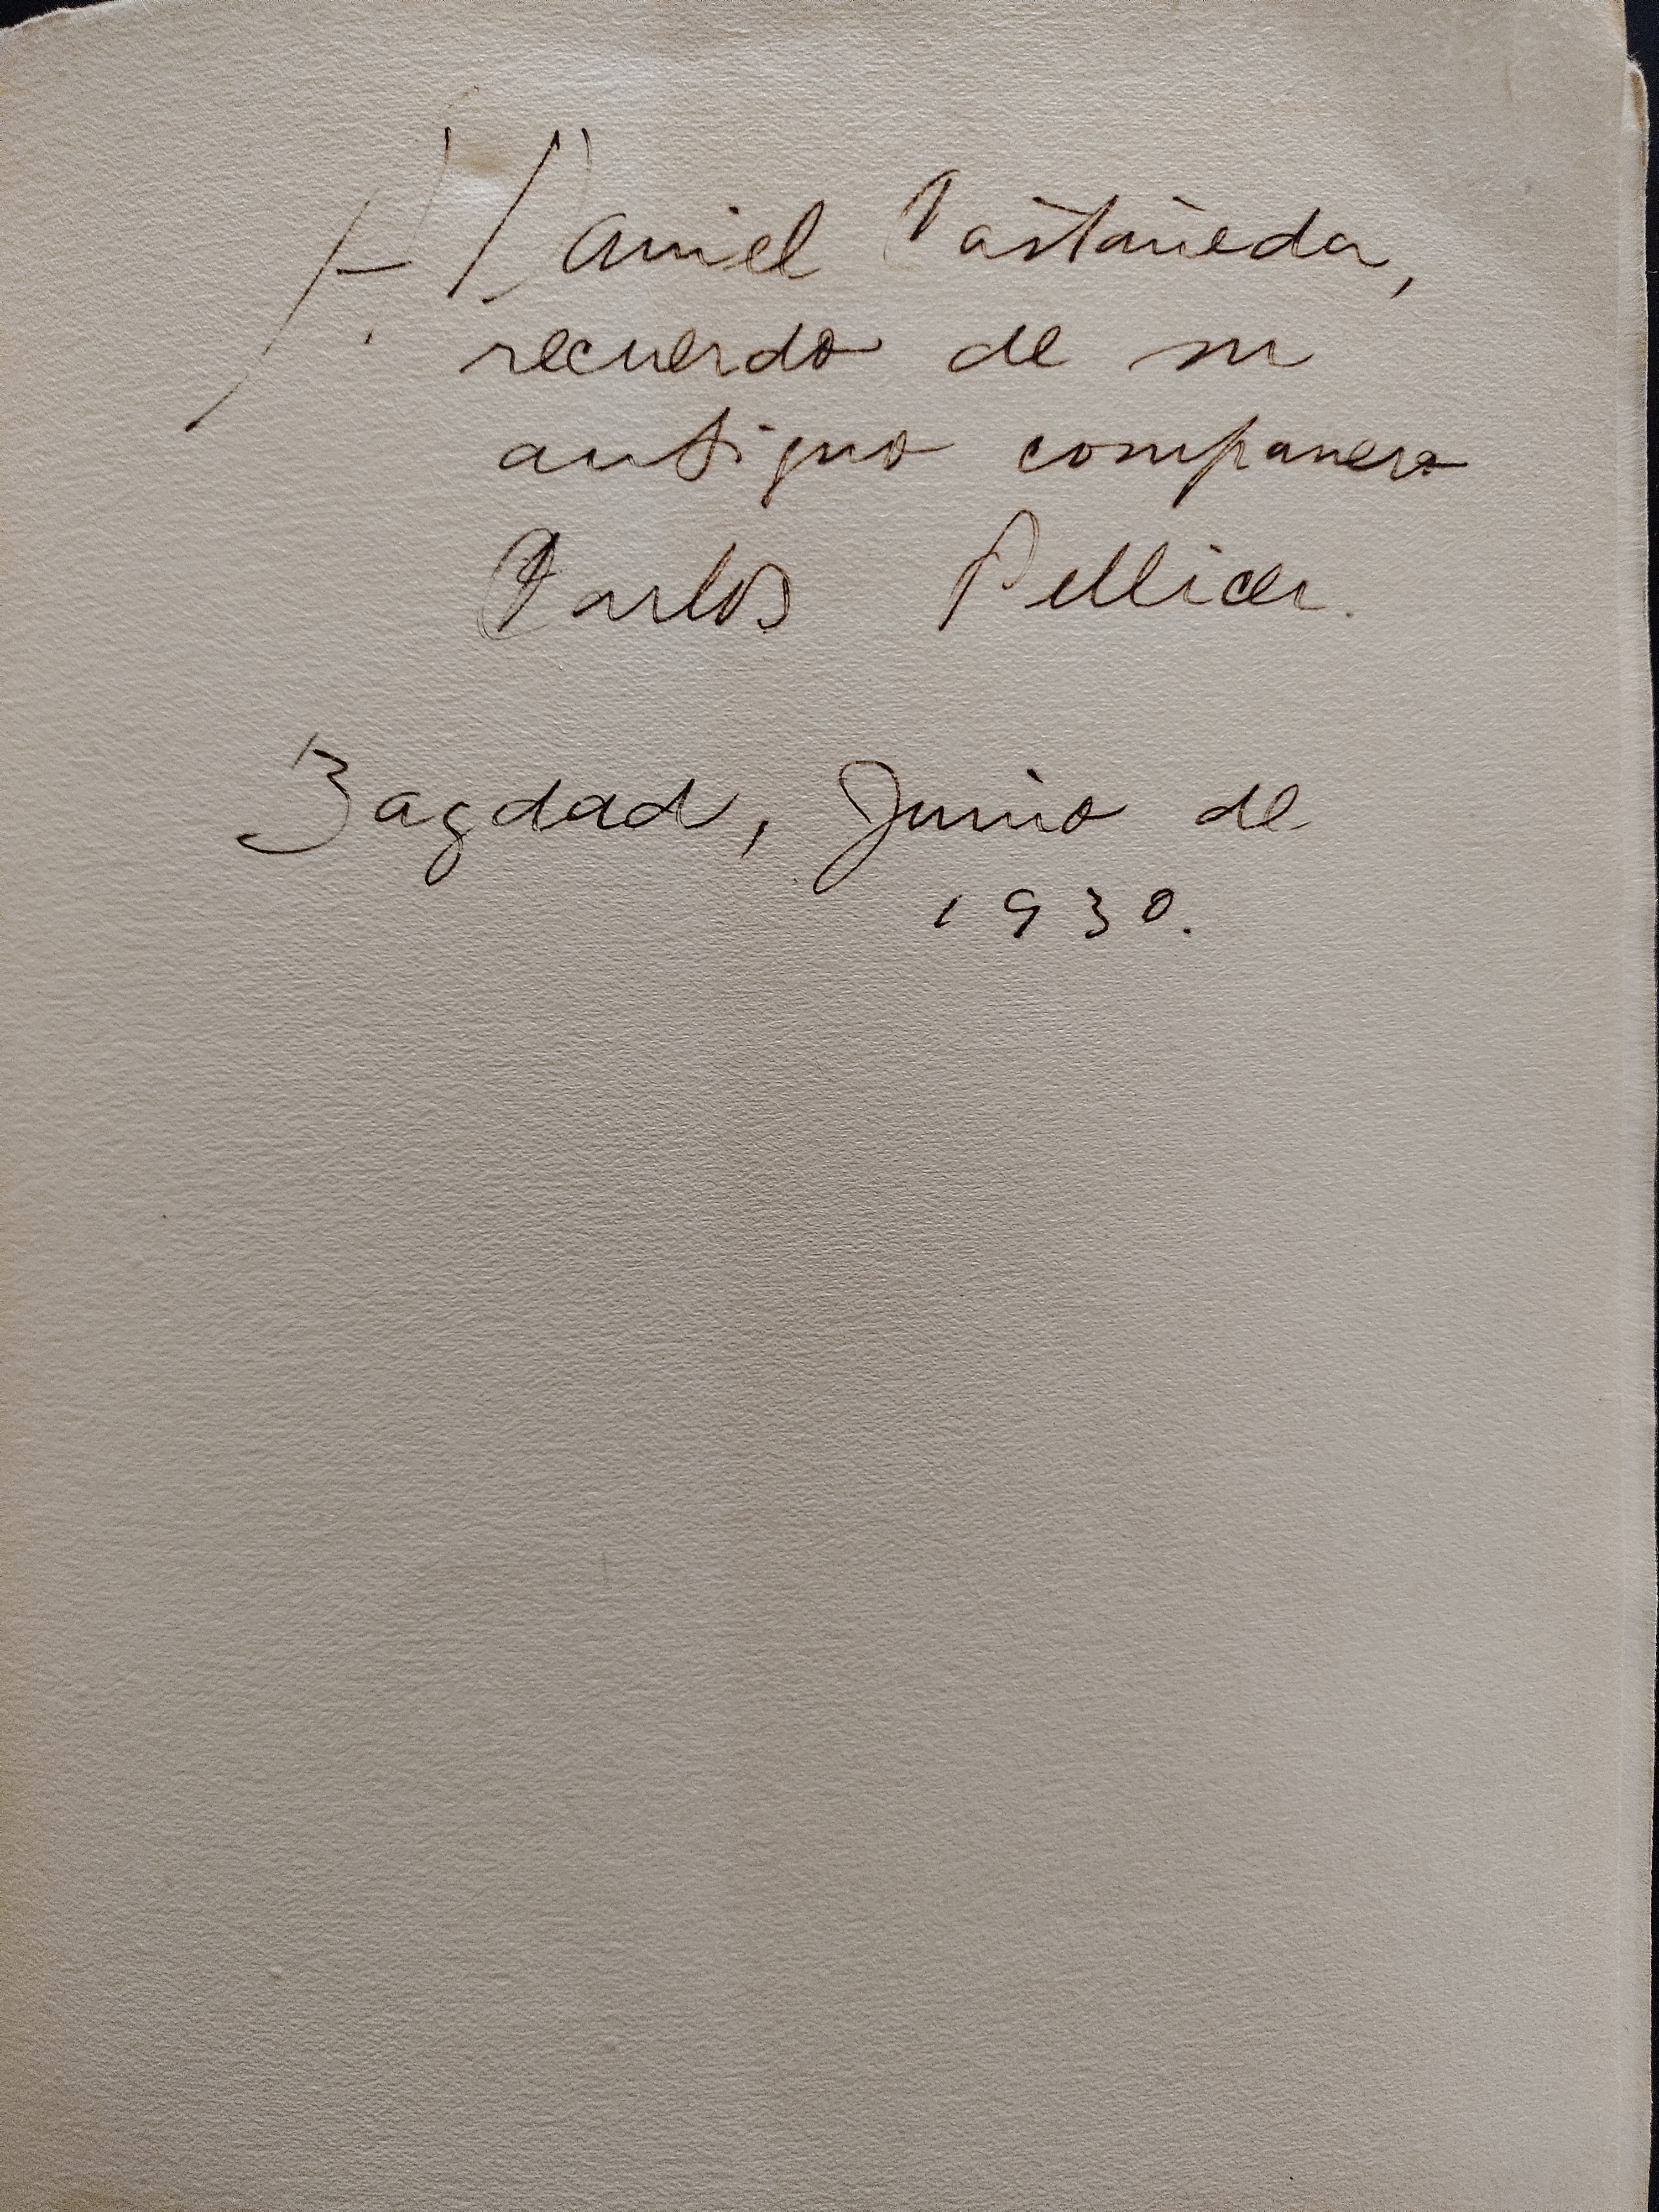 A Daniel Castañeda,
recuerdo de su
antiguo compañero
Carlos Pellicer.
Bagdad, Junio de
1930.